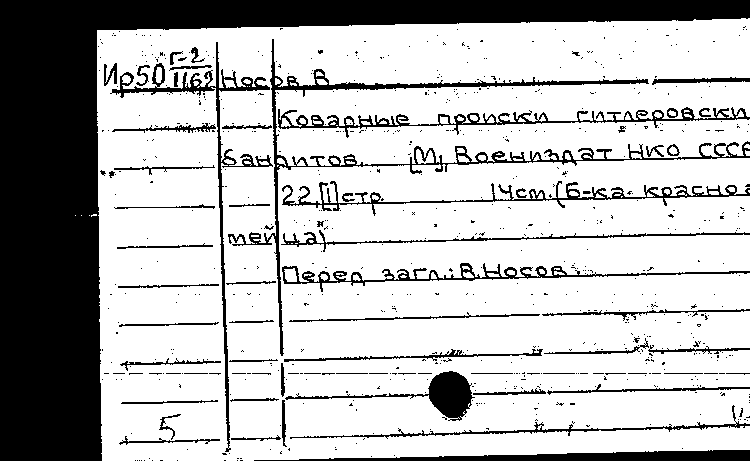 Ир50 Г-2
1162 Носов, В
Коварные происки гитлеровски
бандитов. [М], Воениздат НКО СССР
22,[1]стр. 14см.(Б-ка красноа
мейца).
Перед загл.: В.Носов.
5